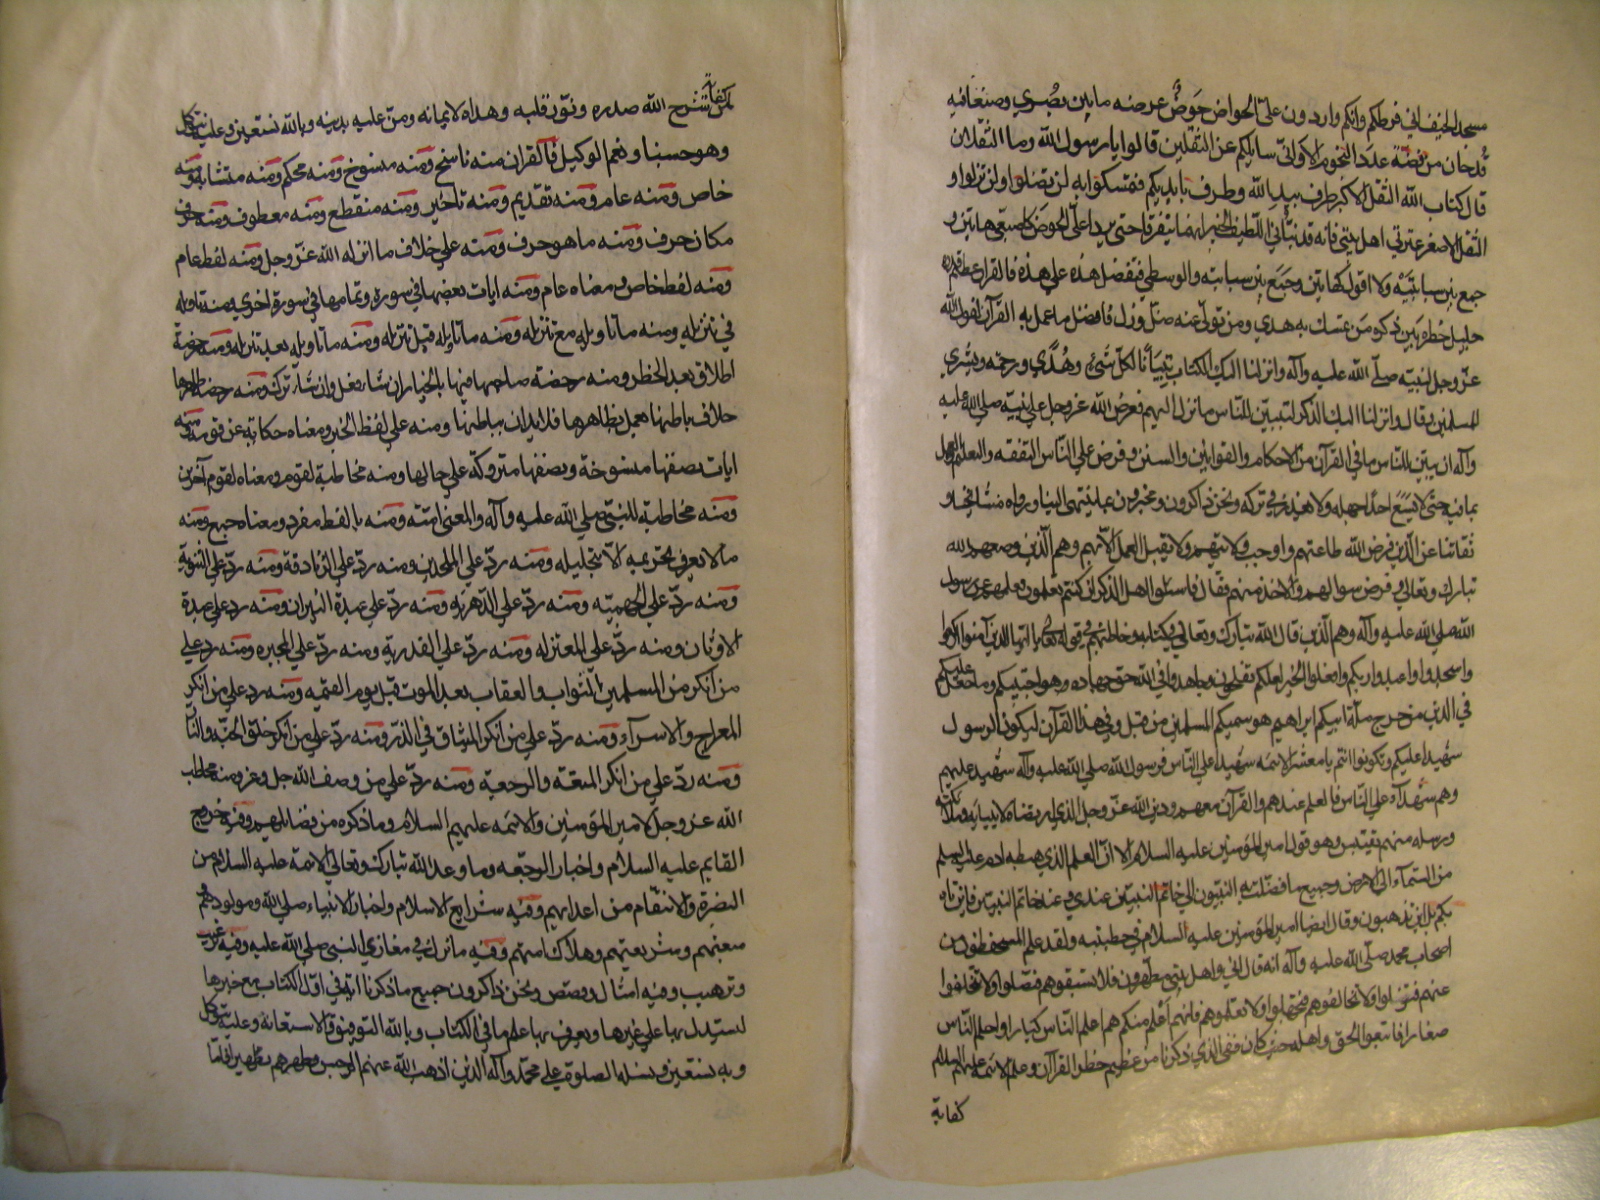 مسجد الخيف اني فرطكم وانكم واردون علي الحوض حوض عرضه ما بين بصري وصنعا فيه
قدحان من فضة عدد النجوم الا واني سايلكم عن الثقلين قالوا يا رسول الله وما الثقلان
قال كتاب الله الثقل الاكبر طرف بيد الله وطرف بايديكم فتمسكوا به لن تضلوا ولن تزلوا و
الثقل الاصغر عترتي اهل بيتي فانه قد نبأني اللطيف الخبير انهما لن يتفرقا حتي يردا علي الحوض كاصبعي هاتين و
جمع بين سبابتيه ولا اقول كهاتين وجمع بين سبابته والوسطي فتفضل هذه علي هذه فالقران عظيم قدره
جليل خطره بين ذكره من تمسك به هدي ومن تولي عنه ضل وزل فافضل ما عمل به القرآن لقول الله
عز وجل لنبيه صلي الله عليه وآله وانزلنا اليك الكتاب تبيانا لكل شئ وهدي ورحمة وبشري
للمسلمين وقال وانزلنا اليك الذكر لتبين للناس ما نزل اليهم ففرض الله عز وجل علي نبيه صلي الله عليه
وآله ان يبين للناس ما في القرآن من الاحكام والقوانين والسنن وفرض علي الناس التفقه والتعليم والعمل
بما فيه حتي لا يسع احدا جهله ولا يعذر في تركه ونحن ذاكرون ومخبرون بما ينتهي الينا ورواه مشايخنا و
ثقاتنا عن الذين فرض الله طاعتهم واوجب ولايتهم ولا يقبل العمل الا بهم وهم الذين وصفهم الله
تبارك وتعالي وفرض سوالهم والاخذ منهم فقال فاسئلوا اهل الذكر ان كنتم لا تعلمون فعلمهم عن رسول
الله صلي الله عليه وآله وهم الذين قال الله تبارك وتعالي في كتابه وخاطبهم في قوله تعالي يا ايها الذين آمنوا اركعوا
واسجدوا واعبدوا ربكم وافعلوا الخير لعلكم تفلحون وجاهدوا في الله حق جهاده وهو اجتبيكم وما جعل عليكم
في الدين من حرج ملة ابيكم ابراهيم هو سميكم المسلمين من قبل وفي هذا القرآن ليكون الرسول
شهيدا عليكم وتكونوا انتم يا معشر الائمه شهيدا علي الناس فرسول الله صلي الله عليه وآله شهيد عليهم
وهم شهدآء علي الناس فالعلم عندهم والقرآن معهم ودين الله عز وجل الذي ارتضاه لانبيايه وملائكته
ورسله منهم يقتبس وهو قول امير المؤمنين عليه السلام الا ان العلم الذي هبط به ادم عليه السلم
من السمآء الي الارض وجميع ما فضلت به النبيون الي خاتم النبيين عندي وعند خاتم النبيين فاين تاه
بكم بل اين تذهبون وقال ايضا امير المؤمنين عليه السلام في خطبته ولقد علم المستحفظون من
اصحاب محمد صلي الله عليه وآله انه قال اني واهل بيتي مطهرون فلا تسبقوهم فتضلوا ولا تتخلفوا
عنهم فتزلوا ولا تخالفوهم فتجهلوا ولا تعلموهم فانهم اعلم منكم هم اعلم الناس كبارا واحلم الناس
صغارا فاتبعوا الحق واهله حيث كان ففي الذي ذكرنا من عظيم خطر القرآن وعلم الائمة عليهم السلام
كفاية
كفاية
لمن شرح الله صدره ونور قلبه وهداه لايمانه ومن عليه بدينه وبالله نستعين وعليه نتوكل
وهو حسبنا ونعم الوكيل فالقران منه ناسخ ومنه منسوخ ومنه محكم ومنه متشابه ومنه
خاص ومنه عام ومنه تقديم ومنه تاخير ومنه منقطع ومنه معطوف ومنه حرف
مكان حرف ومنه ما هو حرف ومنه علي خلاف ما انزله الله عز وجل ومنه لفظ عام
ومنه لفظ خاص ومعناه عام ومنه ايات بعضها في سورة وتمامها في سورة اخري ومنه تاويله
في تنزيله ومنه ما تاويله مع تنزيله ومنه ما تاويله قبل تنزيله ومنه ما تاويله بعد تنزيله ومنه رخصة
اطلاق بعد الحظر ومنه رخصة صاحبها فيها بالخيار ان شاء فعل وان شاء ترك ومنه رخصة ظاهرها
خلاف باطنها يعمل بظاهرها فلا يدان بباطنها ومنه علي لفظ الخبر ومعناه حكاية عن قوم ومنه
ايات نصفها منسوخة ونصفها متروكة علي حالها ومنه مخاطبة لقوم ومعناه لقوم آخرين
ومنه مخاطبة للنبي صلي الله عليه وآله والمعني امته ومنه بالفظ مفرد ومعناه جمع ومنه
ما لا يعرف تحريمه الا بتحليله ومنه رد علي الملحدين ومنه رد علي الزنادقة ومنه رد علي الثنوية
ومنه رد علي الجهمية ومنه رد علي الدهرية ومنه رد علي عبدة النيران ومنه رد علي عبدة
الاوثان ومنه رد علي المعتزله ومنه رد علي القدرية ومنه رد علي المجبره ومنه رد علي
من انكر من المسلمين الثواب والعقاب بعد الموت قبل يوم القيمه ومنه رد علي من انكر
المعراج والاسرآء ومنه رد علي من انكر الميثاق في الذر ومنه رد علي من انكر خلق الجنة والنار
ومنه رد علي من انكر المتعة والرجعية ومنه رد علي من وصف الله جل وعز ومنه خاطب
الله عز وجل لامير المؤمنين والائمه عليهم السلام وما ذكره من فضايلهم وفيه خروج
القايم عليه السلام واخبار الرجعه وما وعد الله تبارك وتعالي الائمة عليه السلام من
النصرة والانتقام من اعدايهم وفيه شرايع الاسلام واخبار الانبياء صلي الله ومولودهم و
مبعثهم وشريعتهم وهلاك امتهم وفيه ما نزل في مغازي النبي صلي الله عليه وفيه ترغيب
وترهيب وفيه امثال وقصص ونحن ذاكرون جميع ما ذكرنا اية في اول الكتاب مع خبرها
لستدل بها علي غيرها ويعرف بها علم ما في الكتاب وبالله التوفيق والاستعانة وعليه نتوكل
وبه نستعين ونسئله الصلوة علي محمد وآله الذين اذهب الله عنهم الرجس وطهرهم تطهيرا فاما